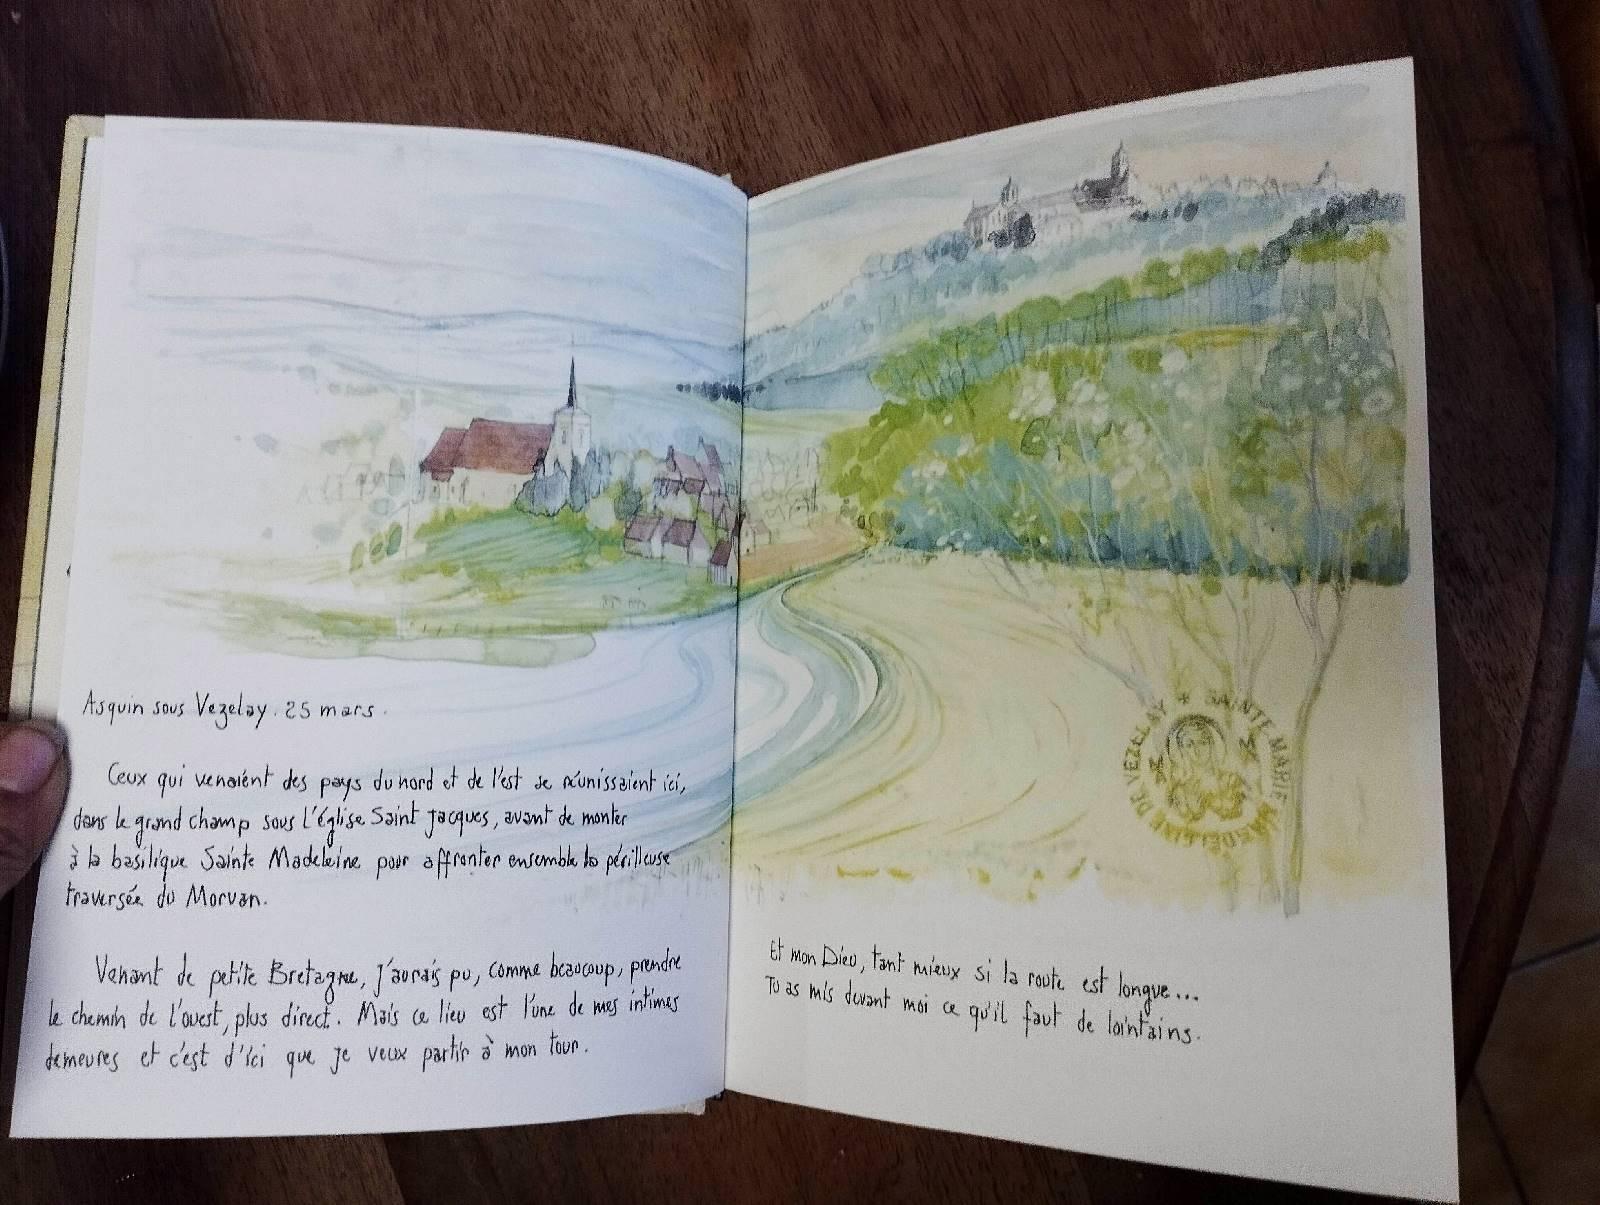 Asquin sous Vezelay. 25 mars.
Ceux qui venaient des pays du nord et de l'est se réunissaient ici,
dans le grand champ sous l'église Saint Jacques, avant de monter
à la basilique Sainte Madeleine pour affronter ensemble la périlleuse
traversée du Morvan.
Venant de petite Bretagne, j'aurais pu, comme beaucoup, prendre
le chemin de l'ouest, plus direct. Mais ce lieu est l'une de mes intimes
demeures et c'est d'ici que je veux partir à mon tour.
SAINTE MARIE MADELEINE DE VEZELAY
Et mon Dieu, tant mieux si la route est longue...
Tu as mis devant moi ce qu'il faut de lointains.